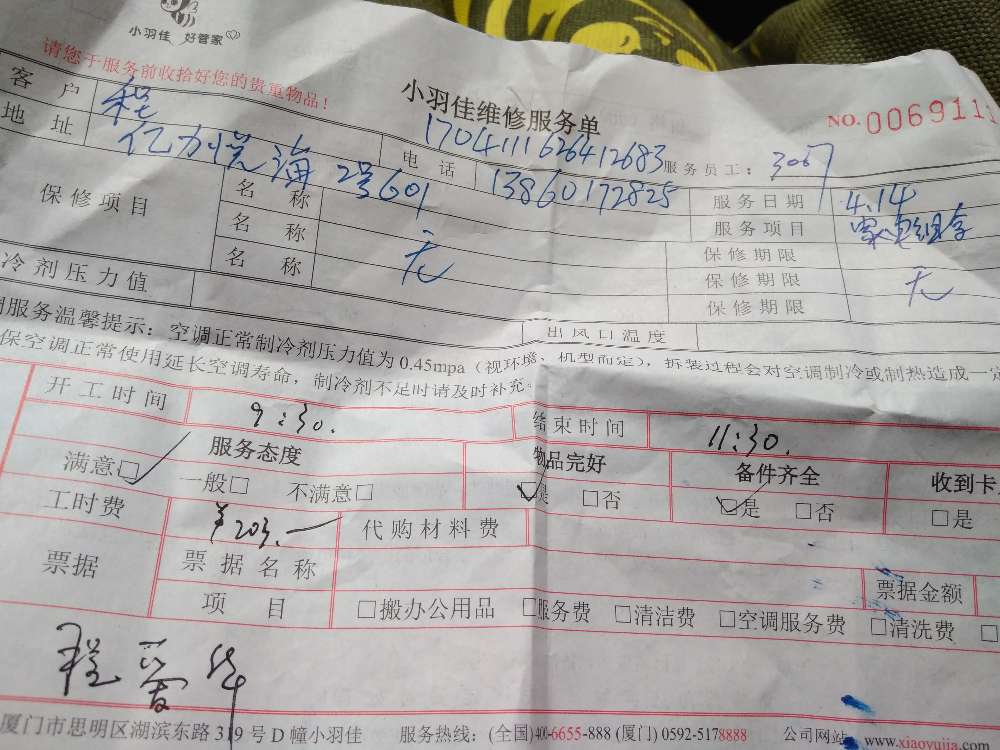 小羽佳 好管家
请您于服务前收拾好您的贵重物品!
小羽佳维修服务单
NO.0069111
客户 程 1704111626412683 服务员工: 3067
地址 亿力悦海 2号601 电话 13860172825 服务日期 4.14
保修项目 名称 服务项目
名称 无 保修期限
名称 保修期限 无
保修期限
冷剂压力值 出风口温度
服务温馨提示: 空调正常制冷剂压力值为 0.45mpa (视环境、机型而定), 拆装过程会对空调制冷或制热造成一定
保空调正常使用延长空调寿命, 制冷剂不足时请及时补充。
开工时间 9:30. 结束时间 11:30.
服务态度 物品完好 备件齐全 收到卡
满意□ 一般□ 不满意□ □是 □否 □是 □否 □是
工时费 ¥203.— 代购材料费
票据 票据名称 票据金额
项目 □搬办公用品 □服务费 □清洁费 □空调服务费 □清洗费 □
程
厦门市思明区湖滨东路 319 号 D 幢小羽佳 服务热线: (全国)400-6655-888 (厦门) 0592-5178888 公司网站 www.xiaoyujia.com